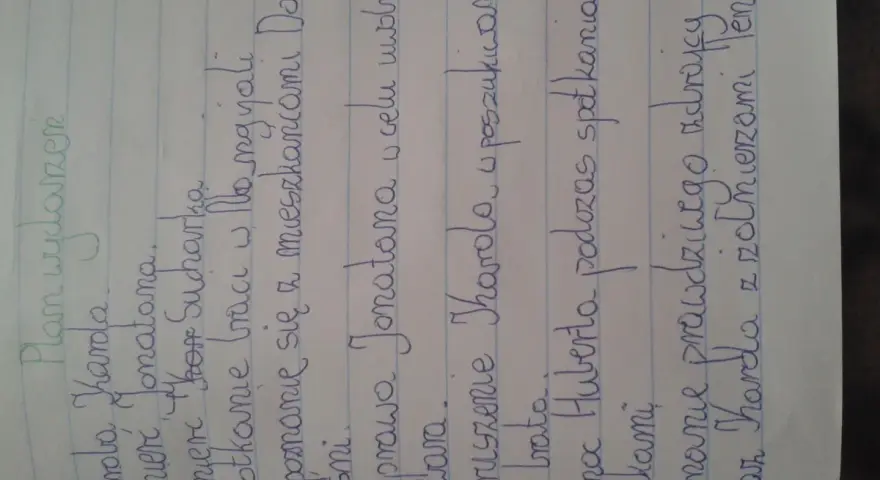 Plan wydarzeń
roba Karola.
ierć Jonatana.
mierć Kar Sucharka.
otkanie braci w Nangijali
poznanie się z mieszkańcami Do
prawa Jonatana w celu uwol
wara.
ruszenie Karola w poszukiwan
brata.
oc Huberta podczas spotkania
kami
nanie prawdziwego zdrajcy
Karola z żołnierzami Ten